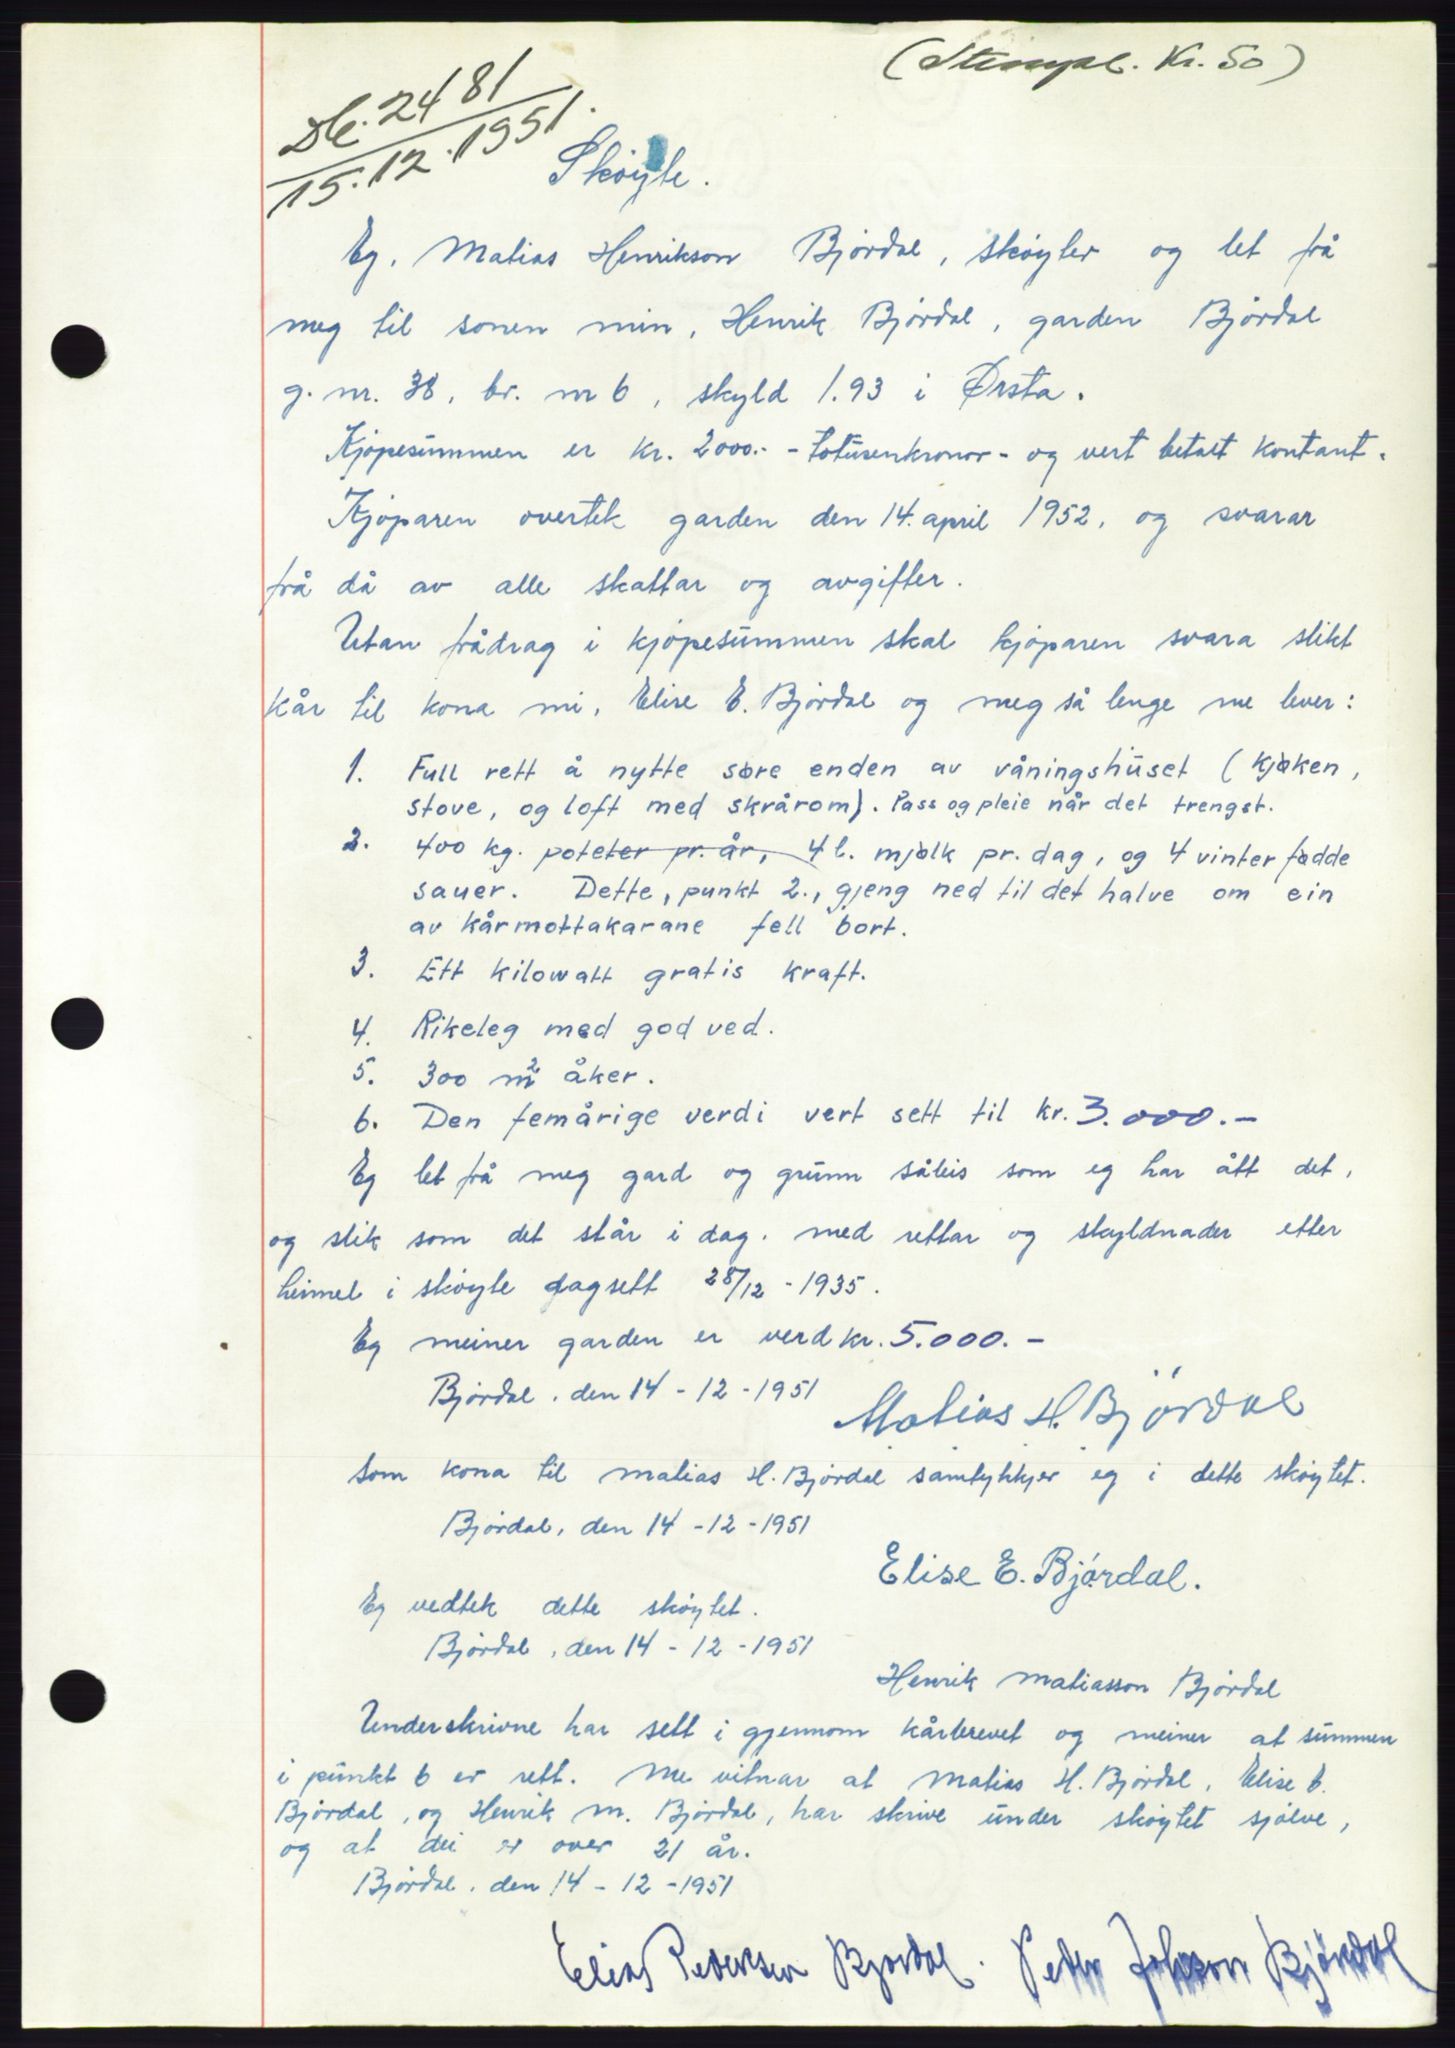 (Stempl. Kr. 50)
Db. 2481
15.12.1951.
Skøyte.
Eg, Matias Henrikson Bjørdal, skøyter og let frå
meg til sonen min, Henrik Bjørdal, garden Bjørdal
g. nr. 38, br. nr 6, skyld 1.93 i Ørsta.
Kjøpesummen er kr. 2000.- - totusenkronor - og vert betalt kontant.
Kjøparen overtek garden den 14. april 1952, og svarar
frå då av alle skattar og avgifter.
Utan frådrag i kjøpesummen skal kjøparen svara slikt
kår til kona mi, Elise E. Bjørdal og meg så lenge me lever:
1. Full rett å nytte søre enden av våningshuset (kjøken,
stove, og loft med skrårom). Pass og pleie når det trengst.
2. 400 kg. poteter pr. år, 4 l. mjølk pr. dag, og 4 vinterfødde
sauer. Dette, punkt 2., gjeng ned til det halve om ein
av kårmottakarane fell bort.
3. Ett kilowatt gratis kraft.
4. Rikeleg med god ved.
5. 300 m² åker.
6. Den femårige verdi vert sett til kr. 3.000.-
Eg let frå meg gard og grunn såleis som eg har ått det,
og slik som det står i dag. med rettar og skyldnader etter
heimel i skøyte dagsett 28/12 - 1935.
Eg meiner garden er verd kr. 5.000.-
Bjørdal, den 14 - 12 - 1951
Matias H. Bjørdal
Som kona til Matias H. Bjørdal samtykkjer eg i dette skøytet.
Bjørdal, den 14 - 12 - 1951
Elise E. Bjørdal.
Eg vedtek dette skøytet.
Bjørdal, den 14 - 12 - 1951
Henrik Matiasson Bjørdal
Underskrivne har sett i gjennom kårbrevet og meiner at summen
i punkt 6 er rett. Me vitnar at Matias H. Bjørdal, Elise E.
Bjørdal, og Henrik M. Bjørdal, har skrive under skøytet sjølve,
og at dei er over 21 år.
Bjørdal, den 14 - 12 - 1951
Elias Pedersen Bjørdal. Peder Johnson Bjørdal